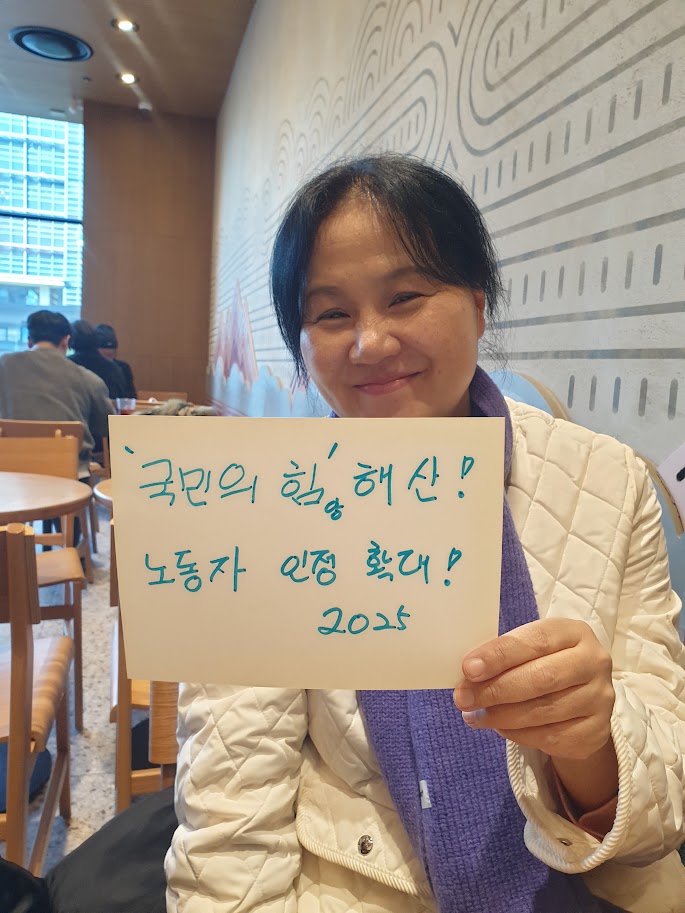 '국민의 힘'당 해산!
노동자 인정 확대!
2025